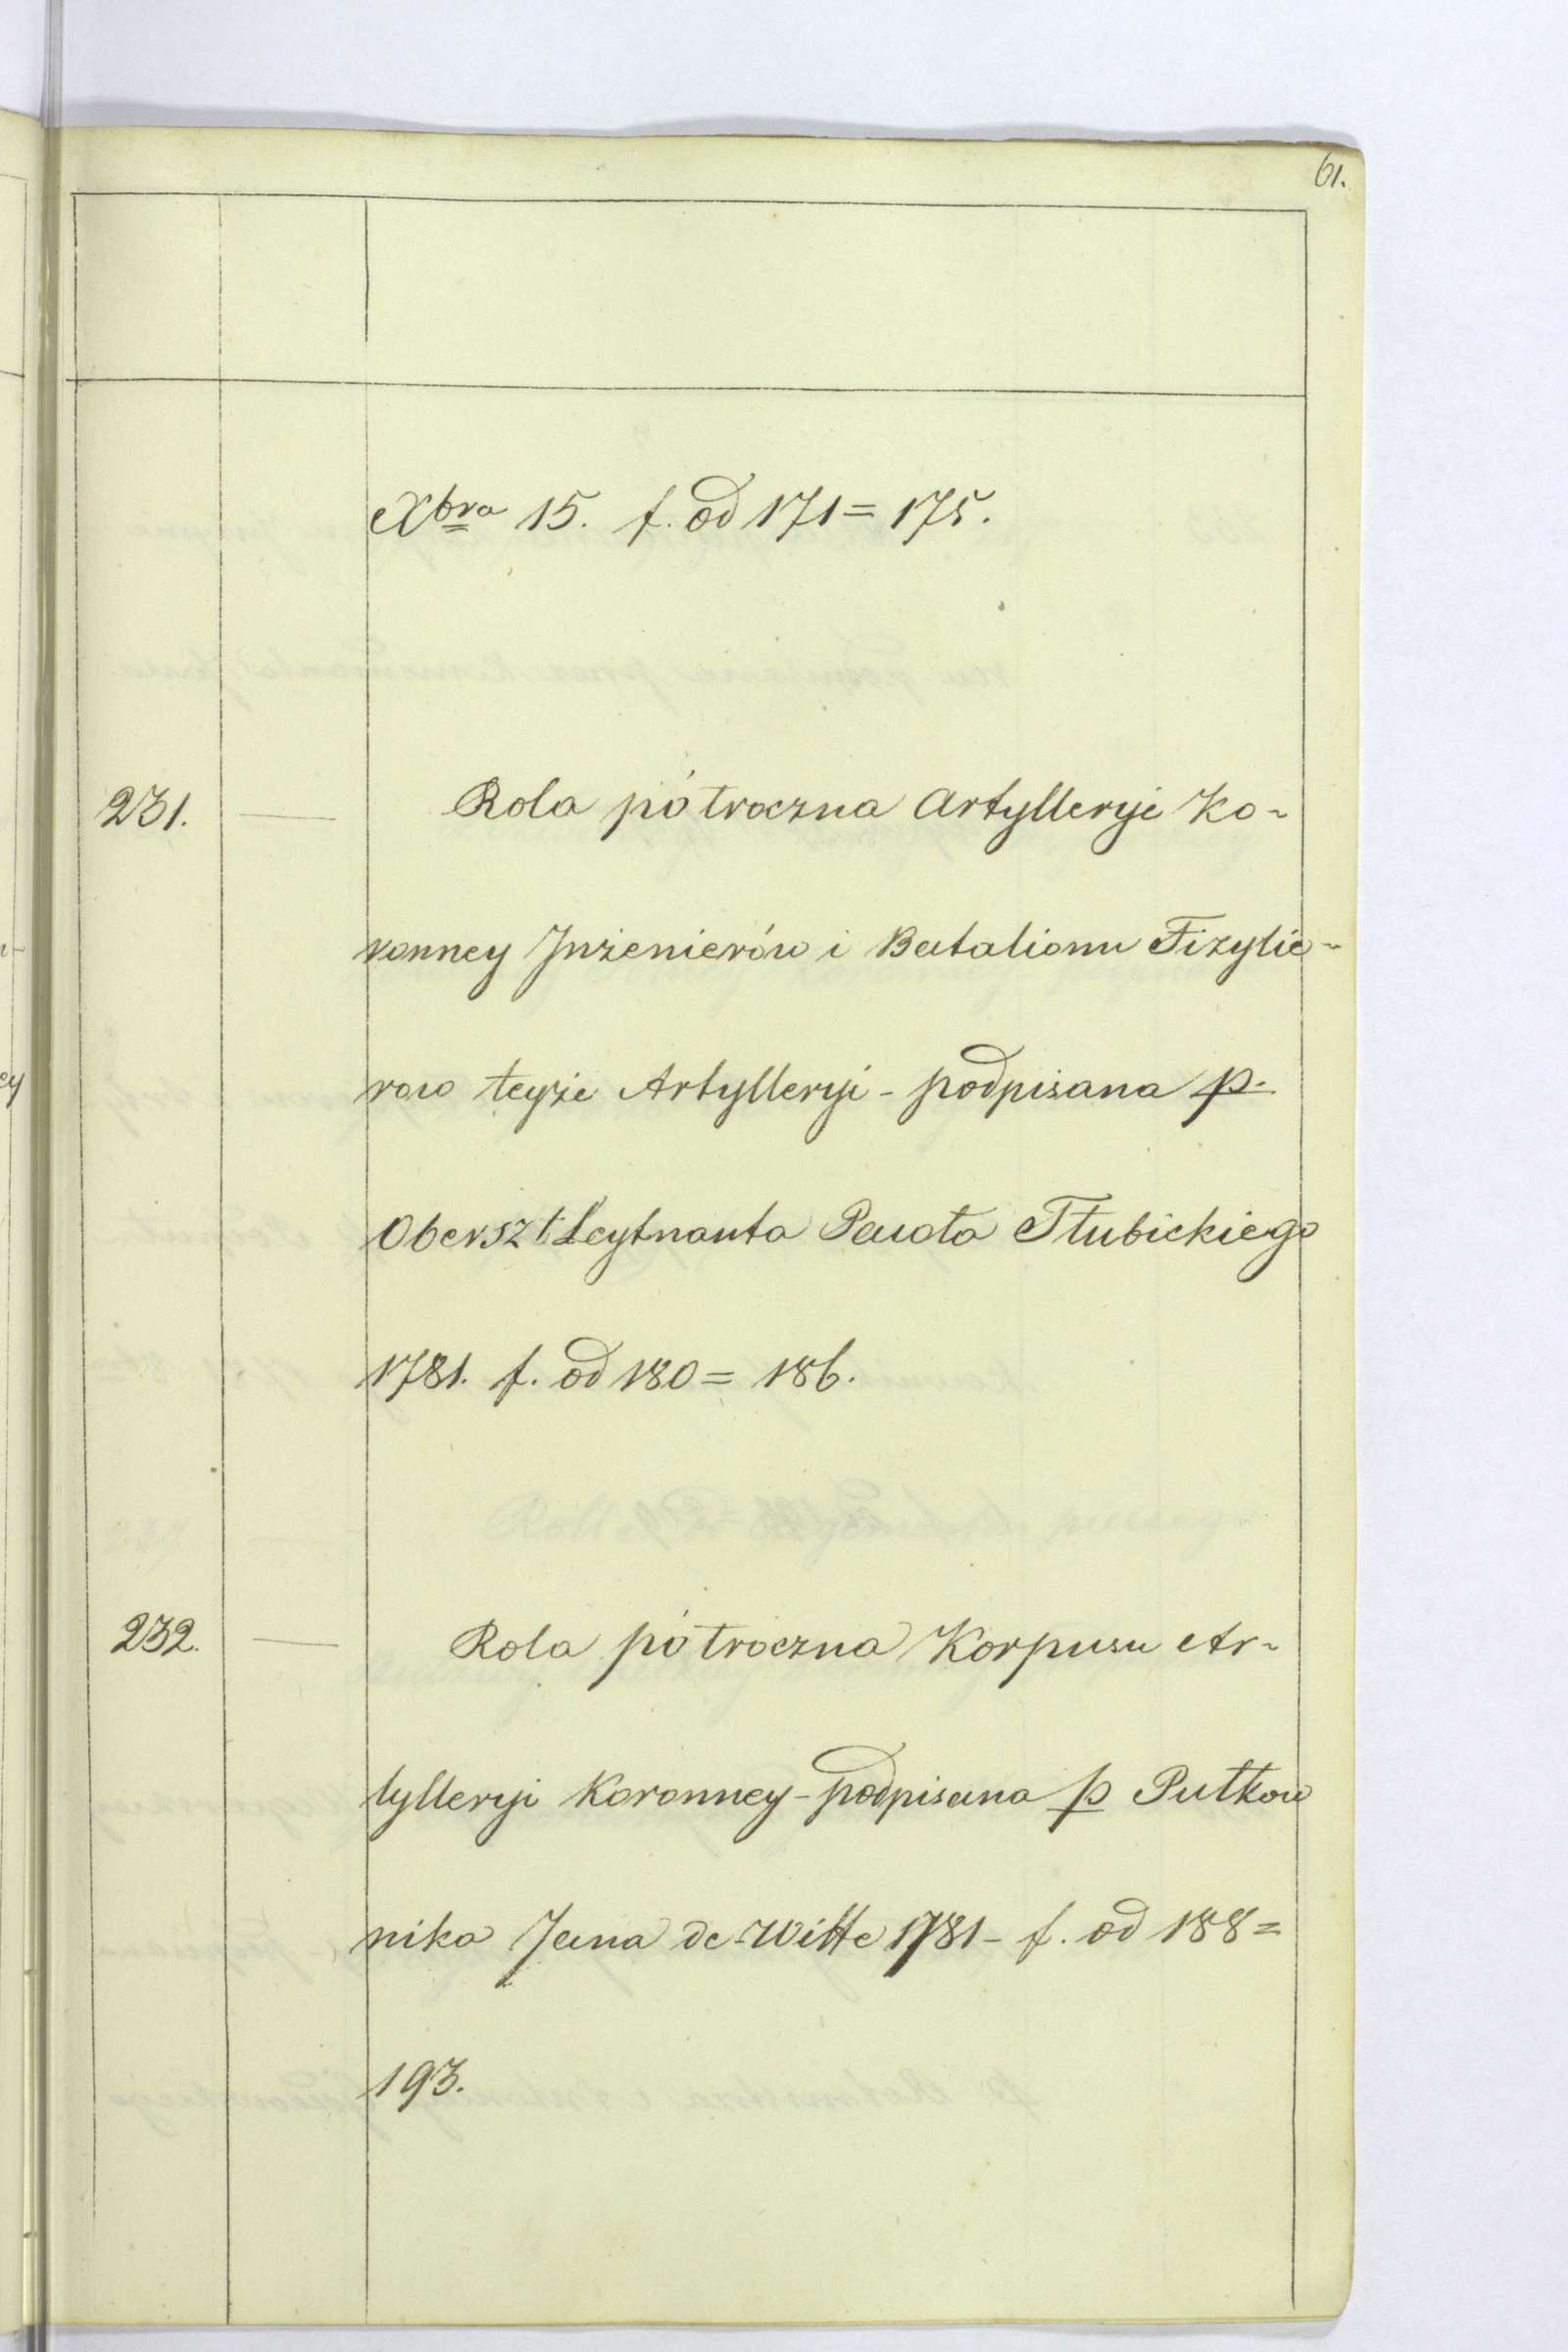 61.
Xbra 15. f. od 171 = 175.
231. — Rola półroczna Artylleryi Ko-
ronney Inżenierów i Batalionu Fizylie-
row teyże Artylleryi - podpisana p.
Oberszt Leytnanta Pawła Tłubickiego
1781. f. od 180 = 186.
232. — Rola półroczna Korpusu Ar-
tylleryi Koronney - podpisana p Pułkow
nika Jana de Witte 1781 - f. od 188 =
193.